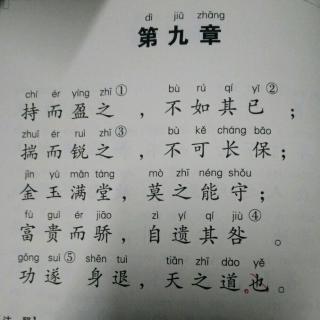 dì jiǔ zhāng
第九章
chí ér yíng zhī ① bù rú qí yǐ ②
持而盈之，不如其已；
zhuī ér ruì zhī ③ bù kě cháng bǎo
揣而锐之，不可长保；
jīn yù mǎn táng mò zhī néng shǒu
金玉满堂，莫之能守；
fù guì ér jiāo zì yí qí jiù ④
富贵而骄，自遗其咎。
gōng suì ⑤ shēn tuì tiān zhī dào yě
功遂身退，天之道也。